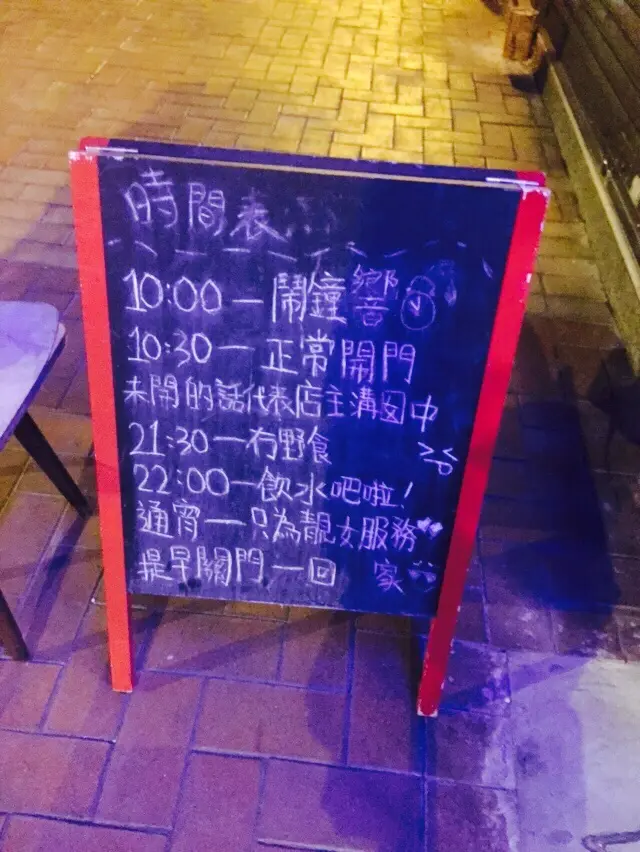 時間表
10:00 — 鬧鐘響
10:30 — 正常開門
未開的話代表店主溝囡中
21:30 — 冇野食
22:00 — 飲水吧啦!
通宵 — 只為靚女服務
提早關門 — 回 家